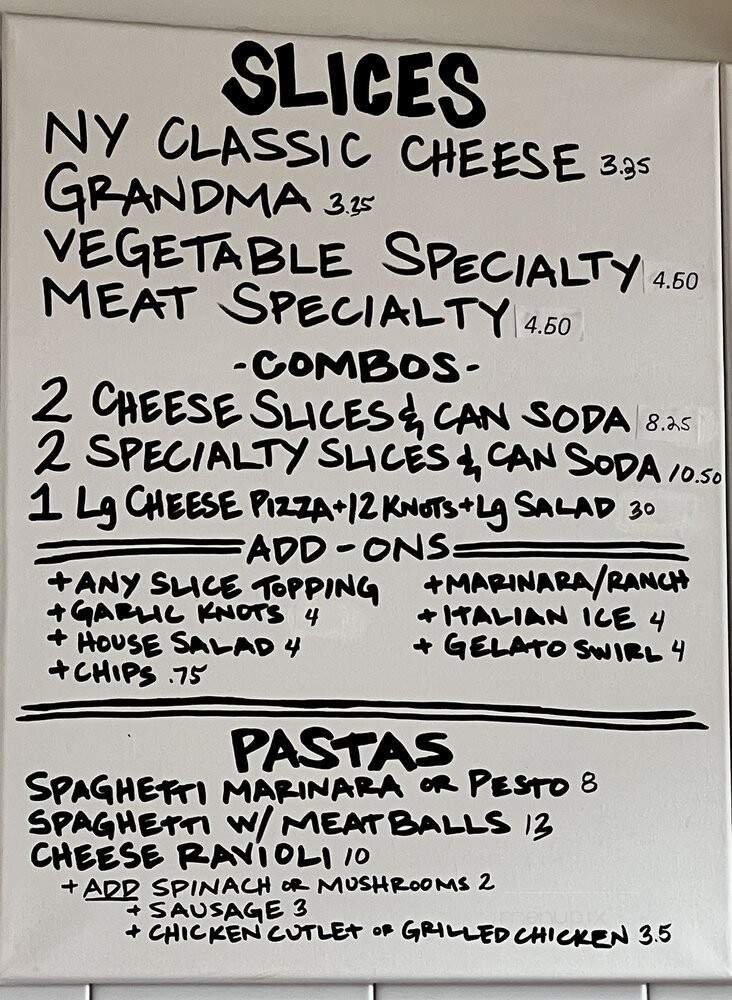 SLICES
NY CLASSIC CHEESE 3.25
GRANDMA 3.25
VEGETABLE SPECIALTY 4.50
MEAT SPECIALTY 4.50
-COMBOS-
2 CHEESE SLICES & CAN SODA 8.25
2 SPECIALTY SLICES & CAN SODA 10.50
1 Lg CHEESE PIZZA+12 KNOTS+Lg SALAD 30
ADD-ONS
+ANY SLICE TOPPING
+GARLIC KNOTS 4
+HOUSE SALAD 4
+CHIPS .75
+MARINARA/RANCH
+ITALIAN ICE 4
+GELATO SWIRL 4
PASTAS
SPAGHETTI MARINARA OR PESTO 8
SPAGHETTI W/ MEATBALLS 13
CHEESE RAVIOLI 10
+ADD SPINACH OR MUSHROOMS 2
+SAUSAGE 3
+CHICKEN CUTLET OR GRILLED CHICKEN 3.5